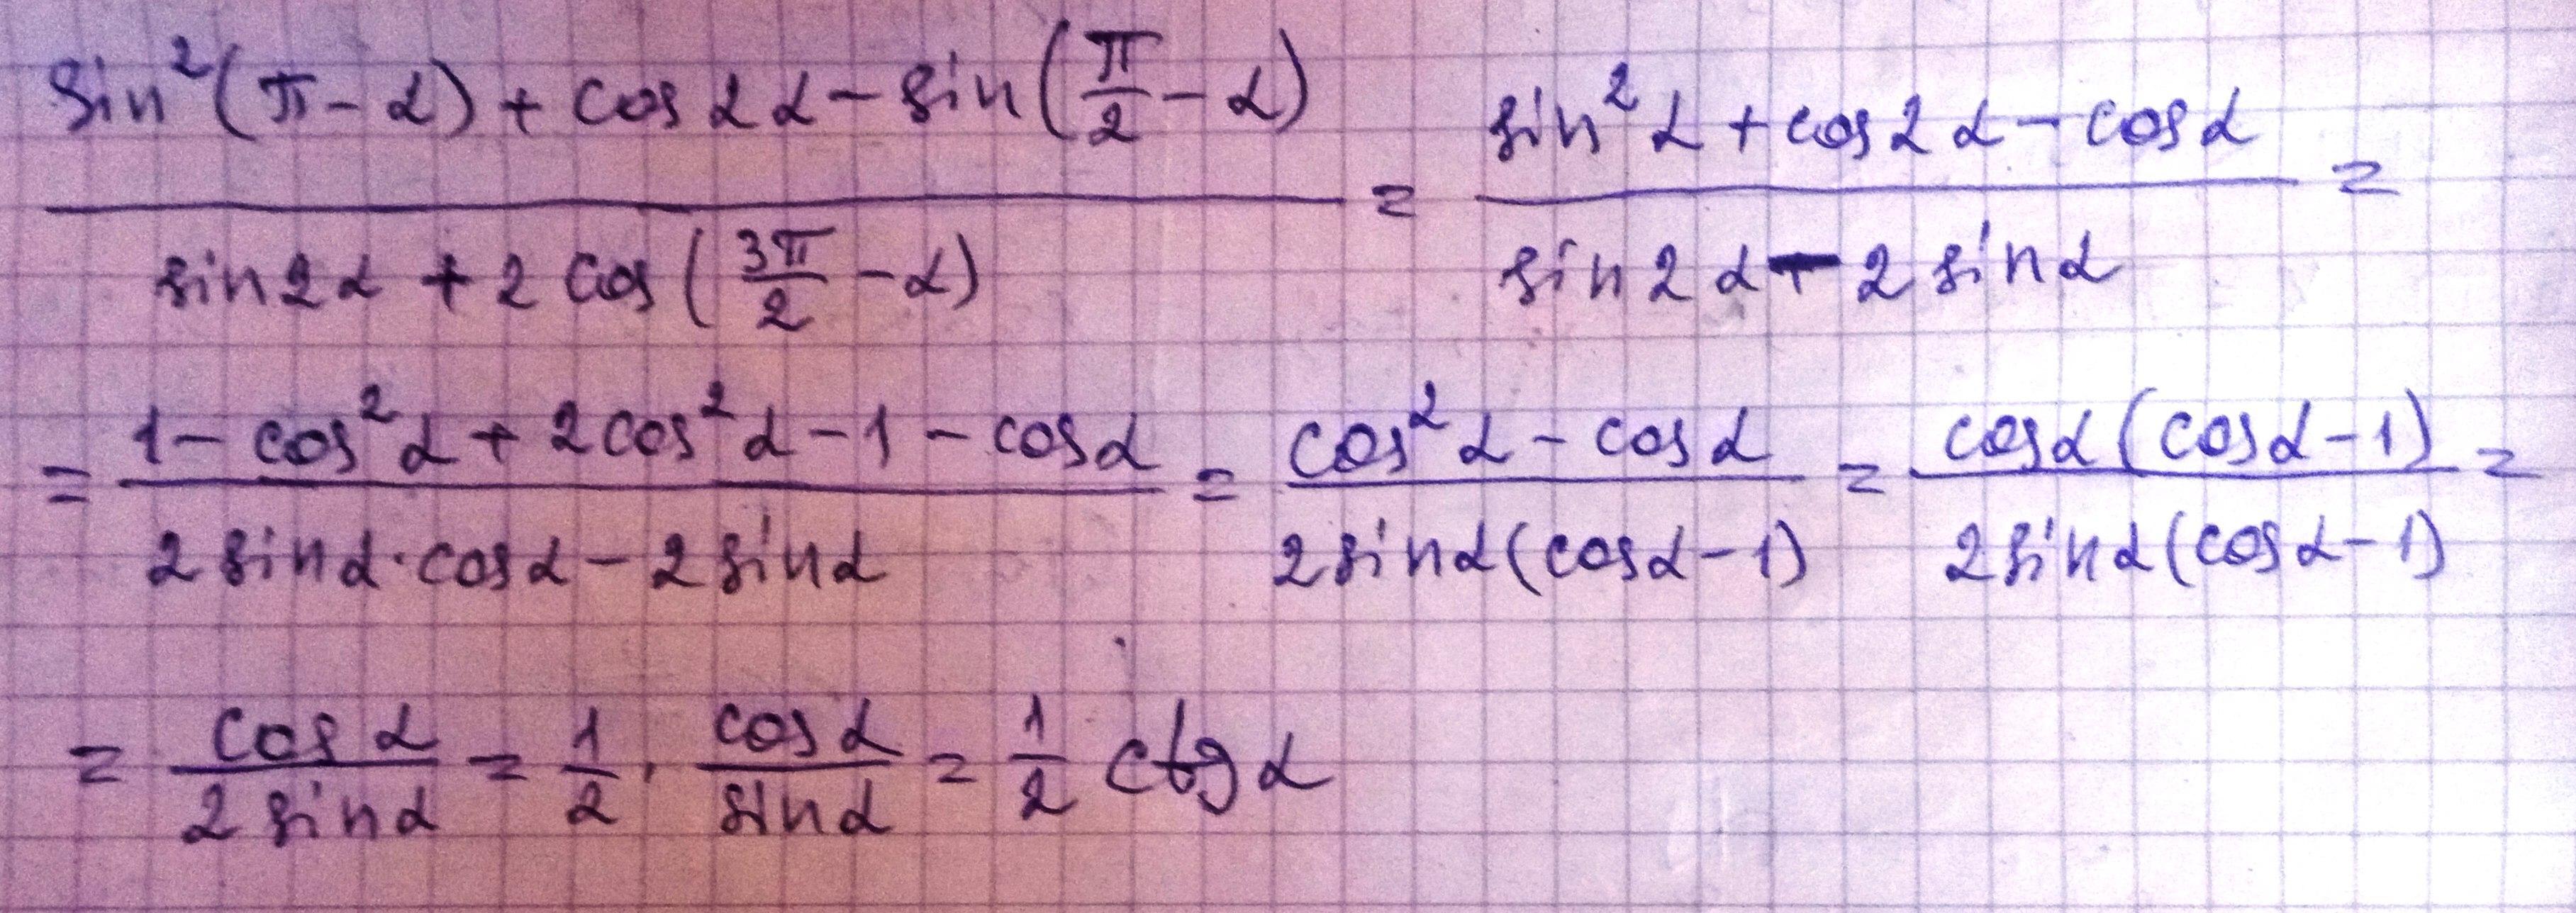 (sin²(π - α) + cos 2α - sin(π/2 - α)) / (sin 2α + 2 cos(3π/2 - α)) = (sin²α + cos 2α - cos α) / (sin 2α - 2 sin α) =
= (1 - cos²α + 2cos²α - 1 - cos α) / (2 sin α · cos α - 2 sin α) = (cos²α - cos α) / (2 sin α (cos α - 1)) = (cos α (cos α - 1)) / (2 sin α (cos α - 1)) =
= cos α / (2 sin α) = 1/2 · cos α / sin α = 1/2 ctg α